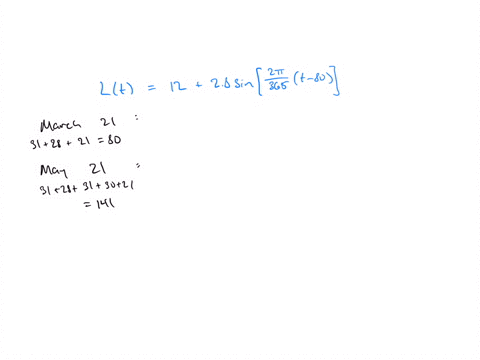 L(t) = 12 + 2.8 sin[2π/365 (t-80)]
March 21 :
31+28+21 = 80
May 21 =
31+28+31+30+21
= 141